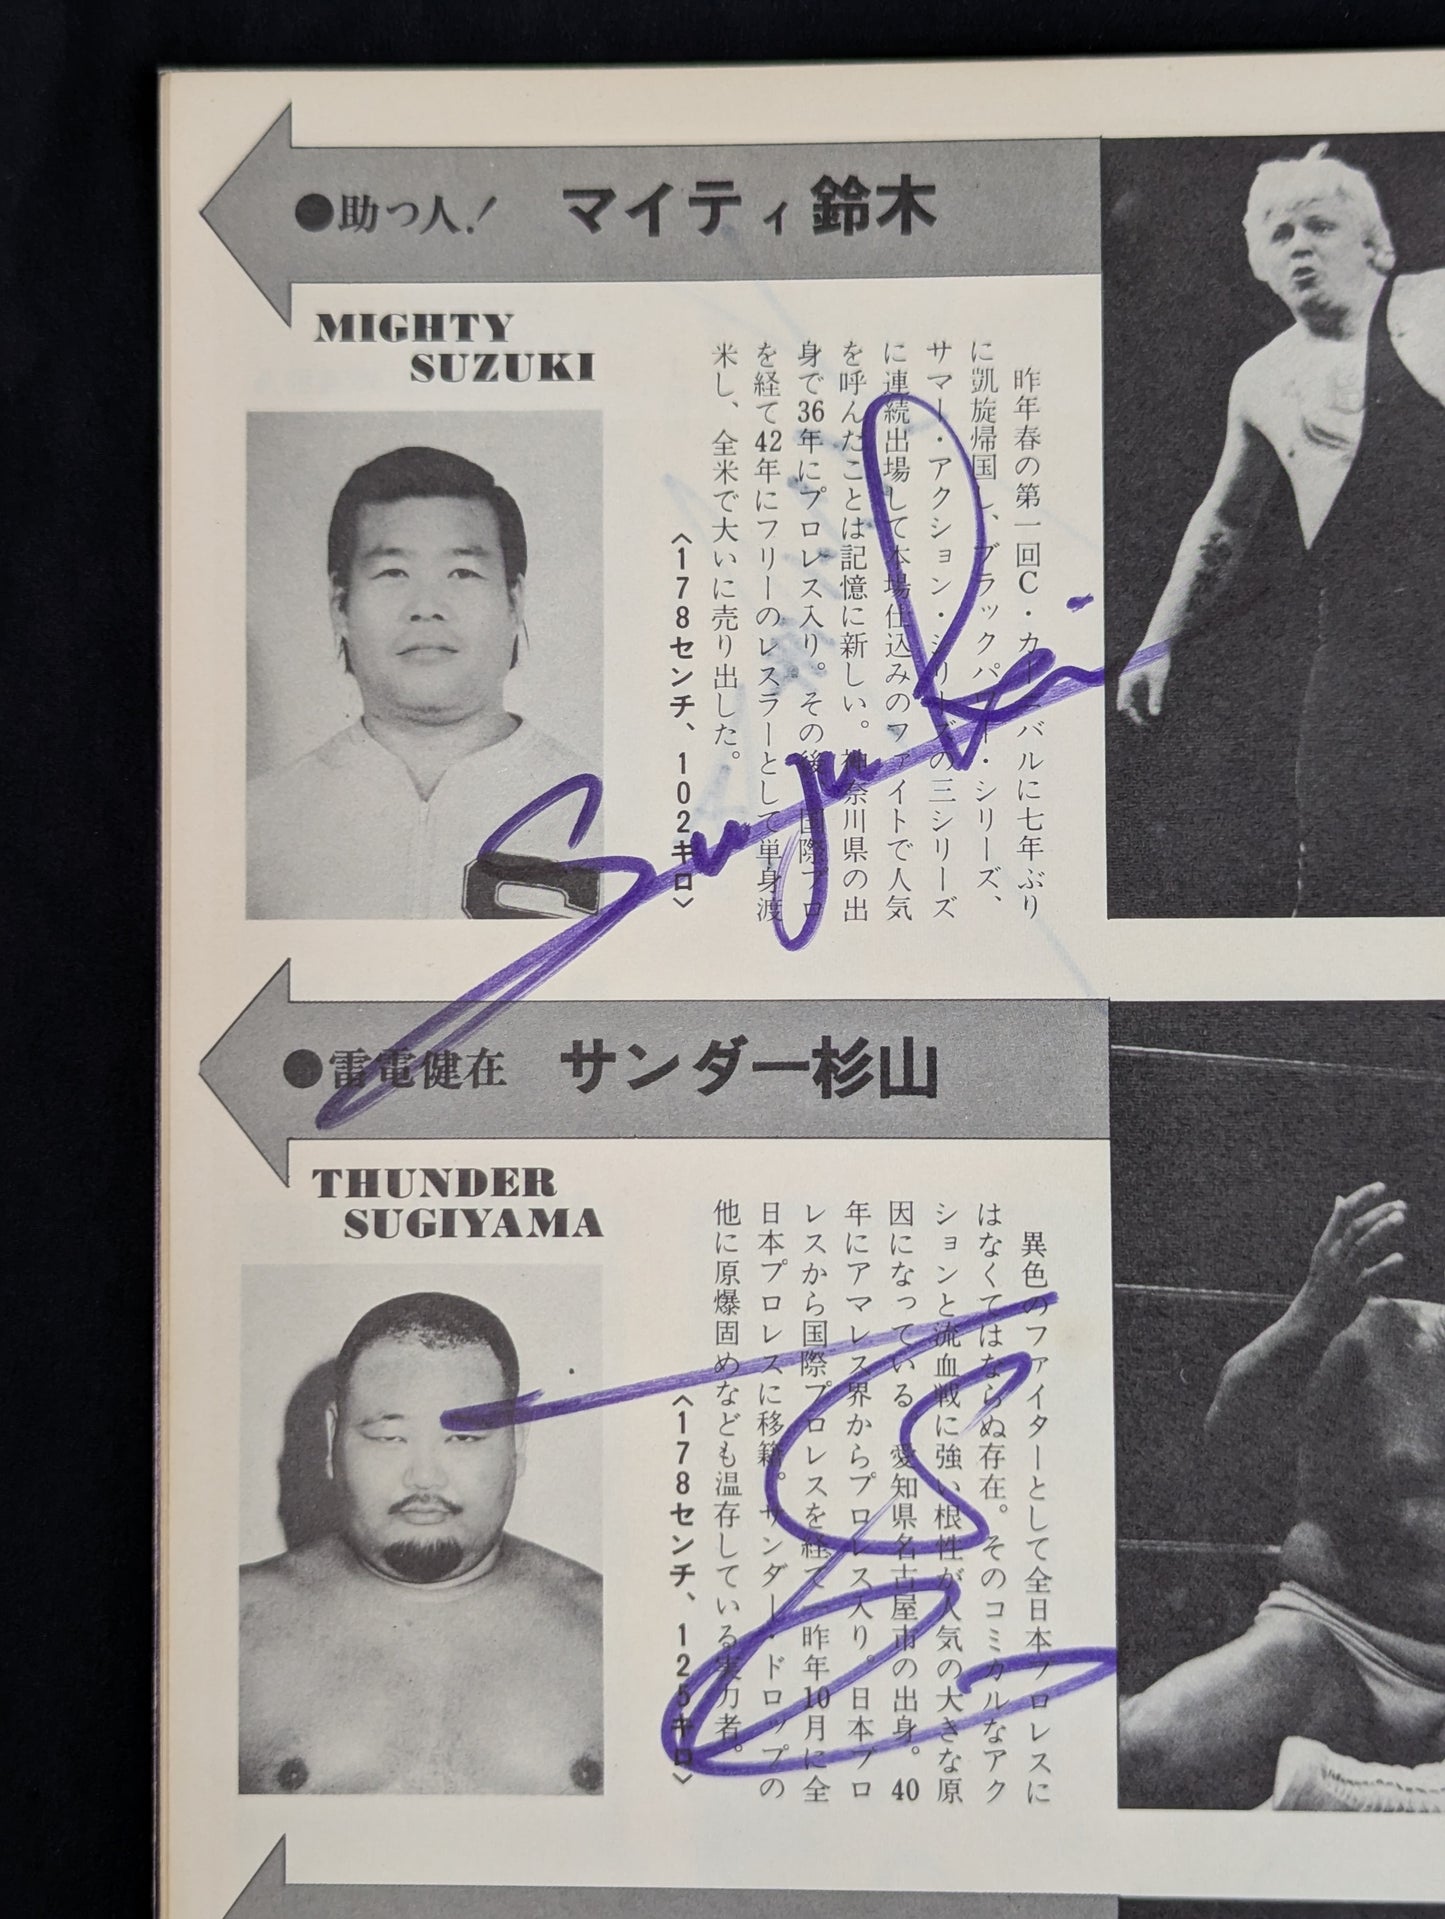 ●助っ人! マイティ鈴木
MIGHTY
SUZUKI
昨年春の第一回C・カーニバルに七年ぶり
に凱旋帰国し、ブラックパワー・シリーズ、
サマー・アクション・シリーズの三シリーズ
に連続出場して本場仕込みのファイトで人気
を呼んだことは記憶に新しい。神奈川県の出
身で36年にプロレス入り。その後 国際プロ
を経て42年にフリーのレスラーとして単身渡
米し、全米で大いに売り出した。
〈178センチ、102キロ〉
Suzuki
●雷電健在 サンダー杉山
THUNDER
SUGIYAMA
異色のファイターとして全日本プロレスに
はなくてはならぬ存在。そのコミカルなアク
ションと流血戦に強い根性が人気の大きな原
因になっている 愛知県名古屋市の出身。40
年にアマレス界からプロレス入り。日本プロ
レスから国際プロレスを経て 昨年10月に全
日本プロレスに移籍。サンダー・ドロップの
他に原爆固めなども温存している実力者。
〈178センチ、125キロ〉